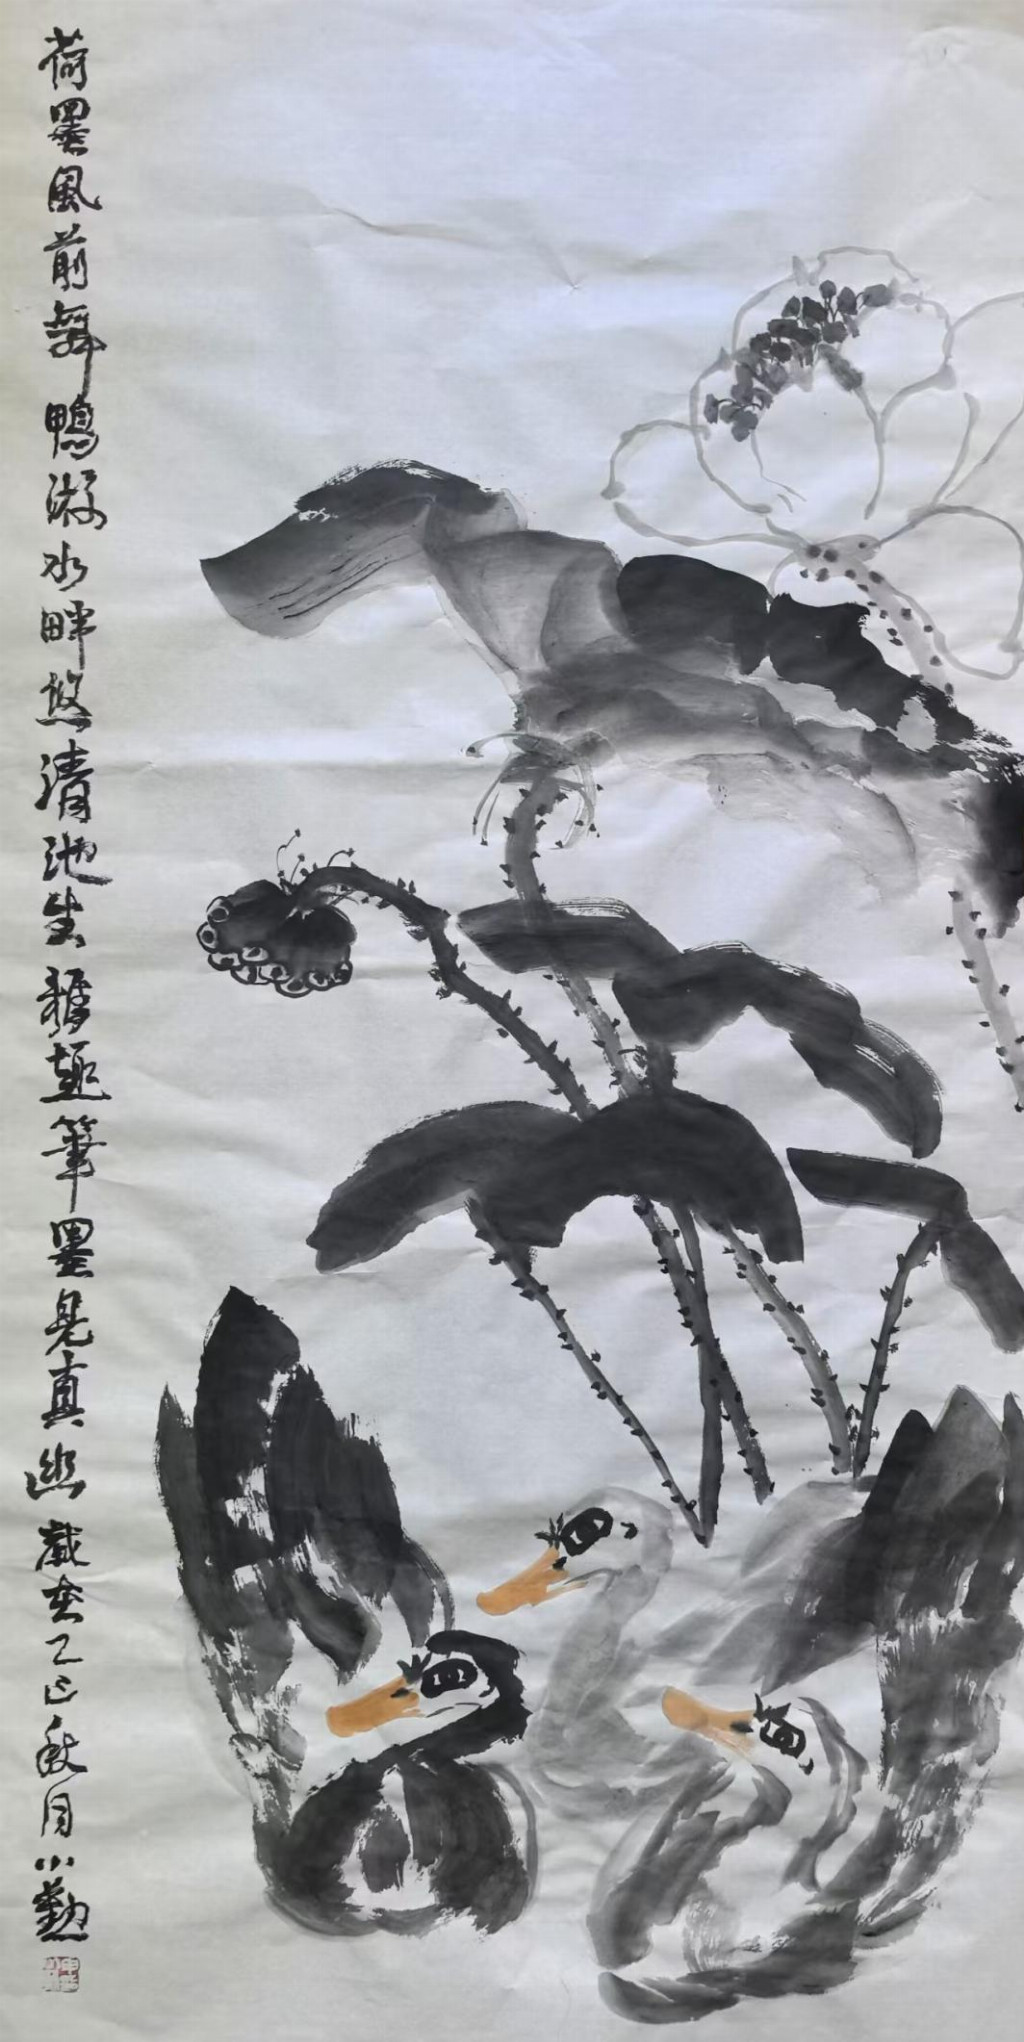 荷墨風前舞鴨游水畔悠清池生雅趣筆墨見真幽歲在乙巳秋月小勲